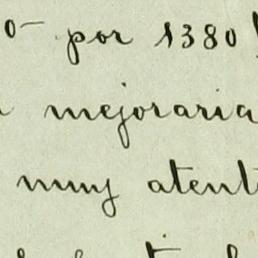 por 1380
mejoraria
muy atent